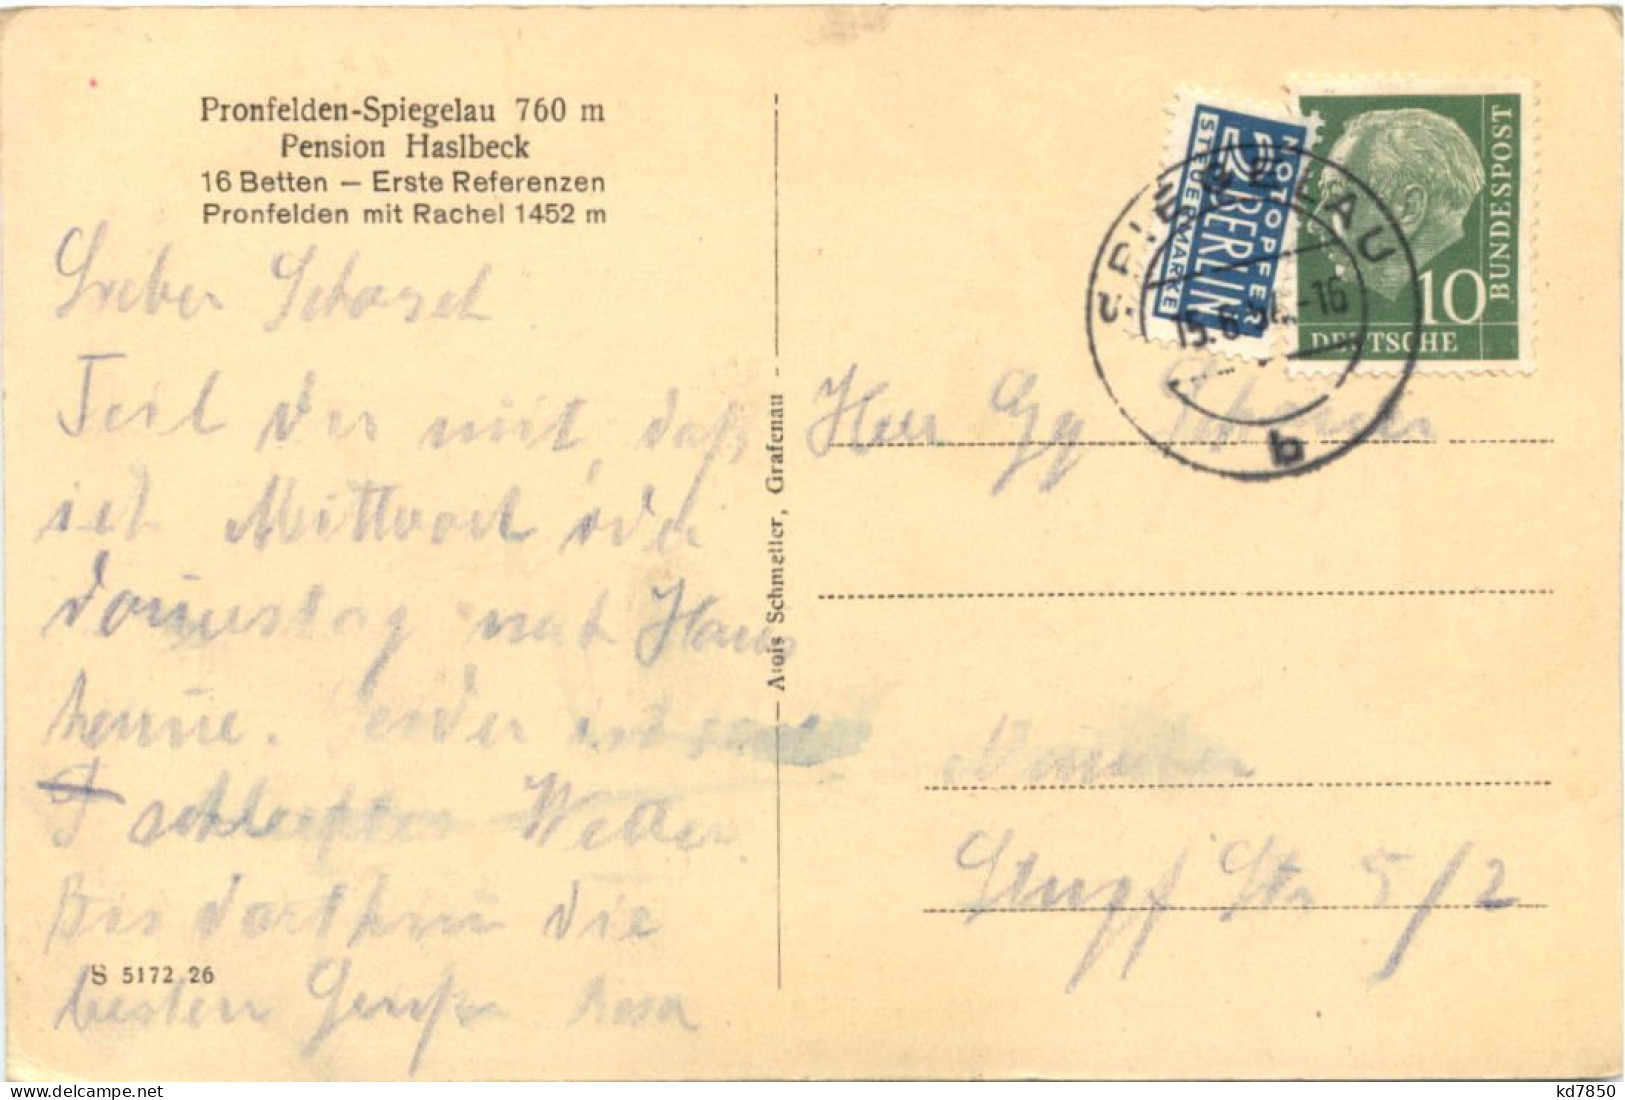 Pronfelden-Spiegelau 760 m
Pension Haslbeck
16 Betten — Erste Referenzen
Pronfelden mit Rachel 1452 m
Lieber Schorsch
Teil dir mit, daß
ich Mittwoch oder
Donnerstag nach Haus
komme. Leider ist
schlechtes Wetter
Bis dorthin die
besten Grüße Rosa
S 5172 26
Alois Schmeller, Grafenau
NOTOPFER
2 BERLIN
STEUERMARKE
BUNDESPOST
10
DEUTSCHE
SPIEGELAU
15.6.54.-16
b
Herr Gg
München
Str 5/2
kd7850